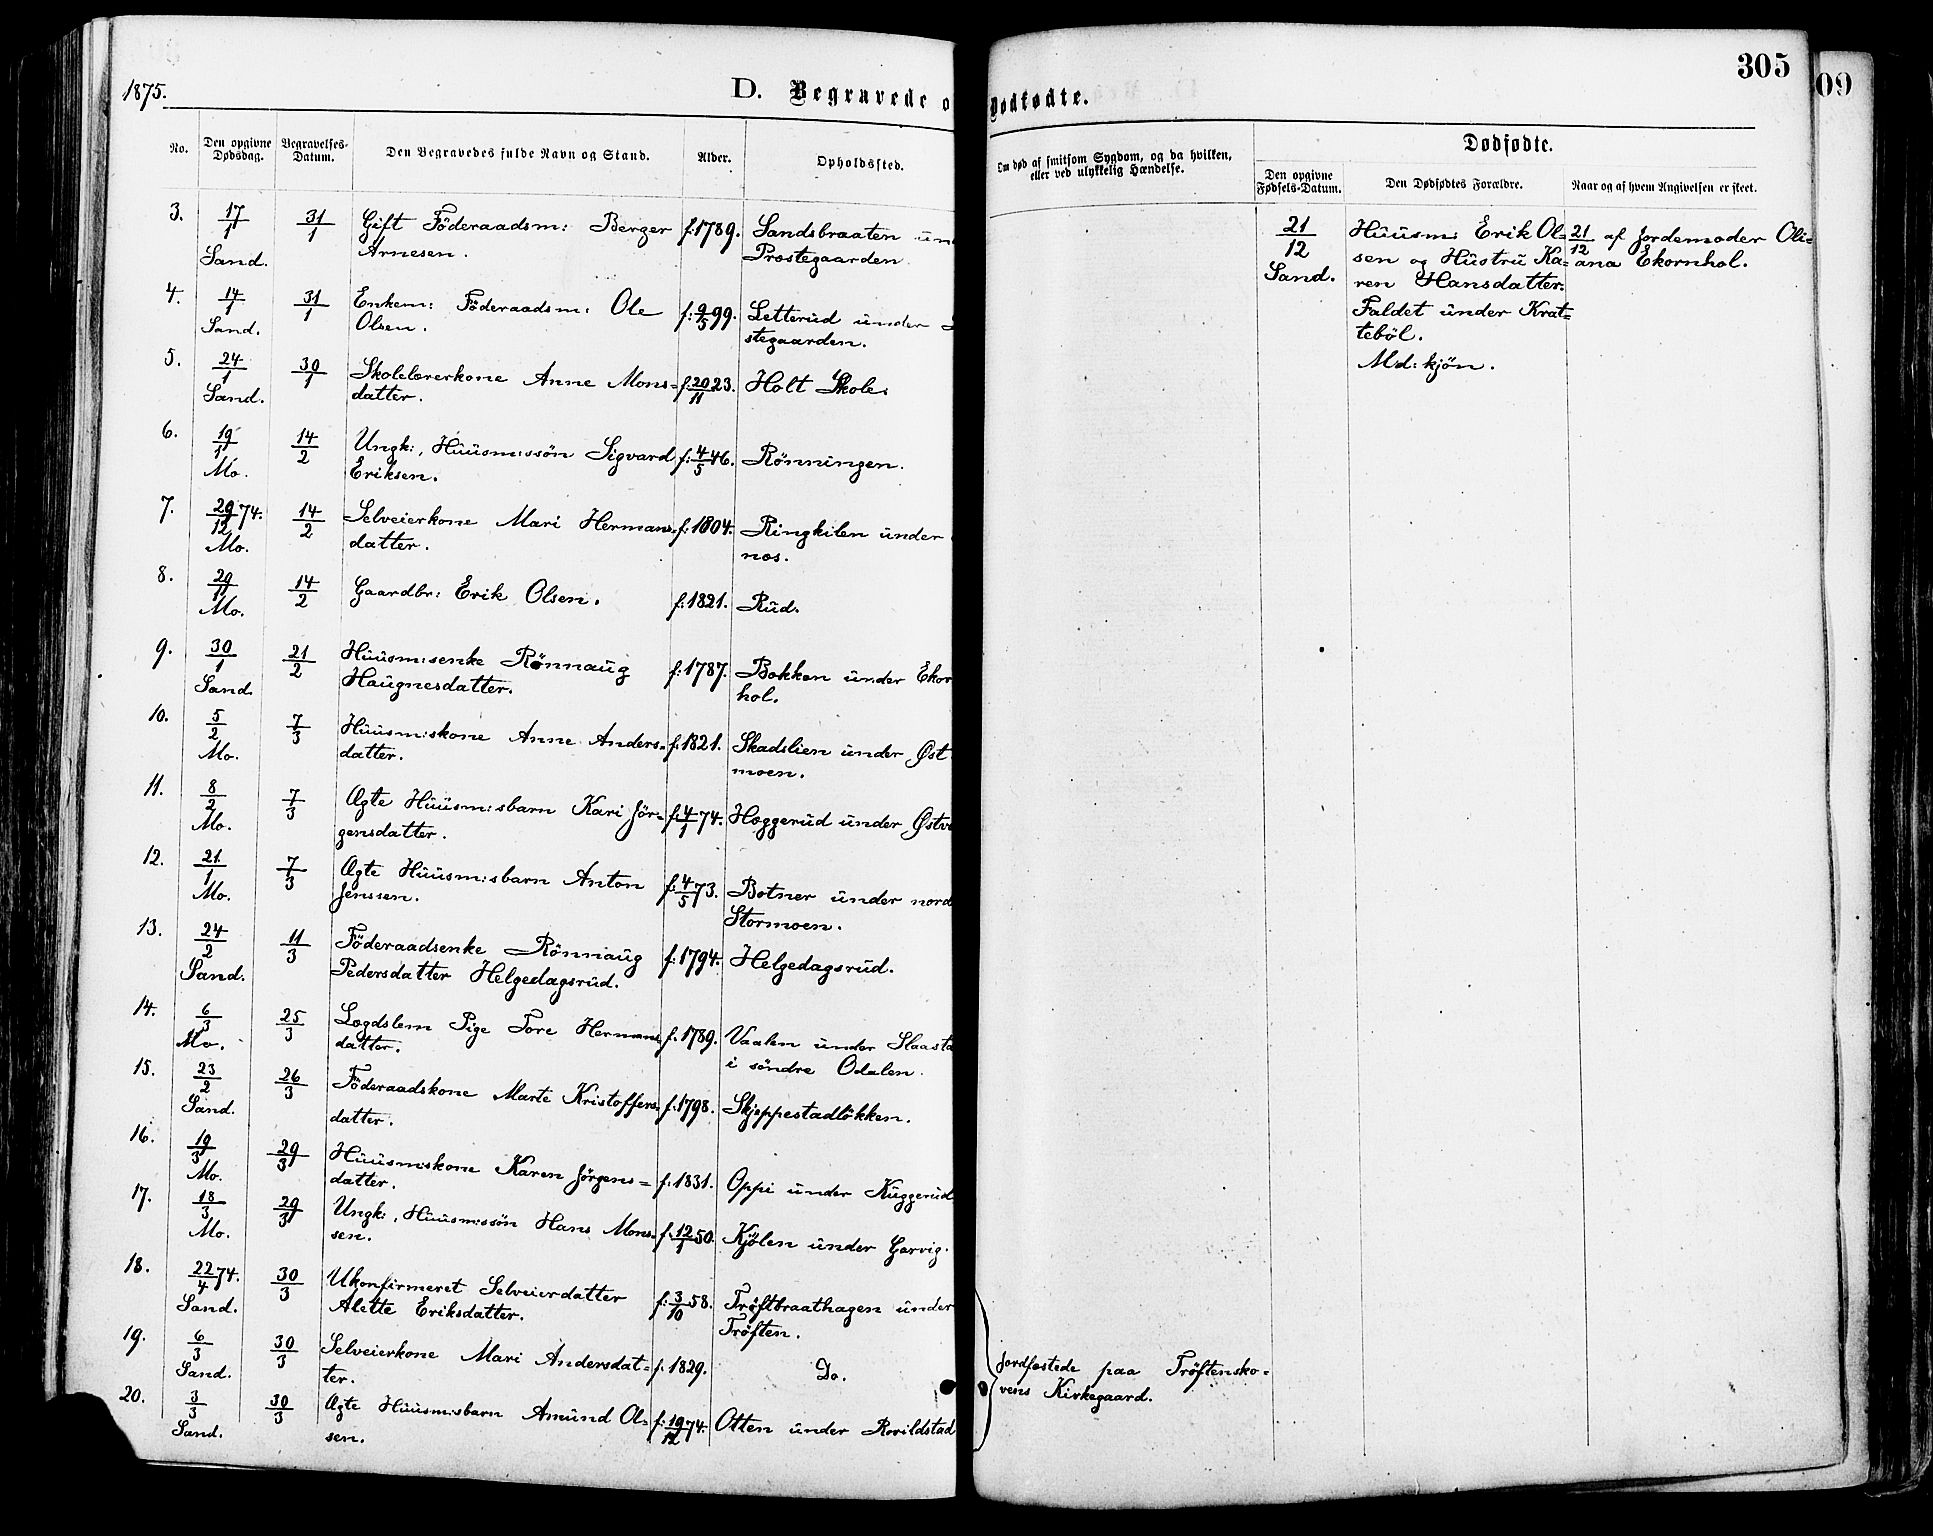 1875.
D. Begravede o
Dødfødte.
305
09
No.
Den opgivne
Dødsdag.
Begravelses-
Datum.
Den Begravedes fulde Navn og Stand.
Alder.
Opholdssted.
Om død af smitsom Sygdom, og da hvilken,
eller ved ulykkelig Hændelse.
Dødfødte.
Den opgivne
Fødsels-Datum.
Den Dødfødtes Forældre.
Naar og af hvem Angivelsen er skeet.
3. 17/1 31/1 Gift Föderaadsm: Berger f:1789. Sandsbraaten un
Sand. Arnesen. Prestegaarden.
4. 14/1 31/1 Enkem: Föderaadsm: Ole f:9/5 99. Letterud under
Sand. Olsen. stegaarden.
5. 24/1 30/1 Skolelærerkone Anne Mons= f:20/11 23. Holt Skole.
Sand. datter.
6. 19/1 14/2 Ungk:, Huusm:ssön Sigvard f:4/5 46. Rönningen.
Mo. Eriksen.
7. 29/12 74. 14/2 Selveierkone Mari Hermans= f:1804. Ringkilen under
Mo. datter. næs.
8. 29/11 14/2 Gaardbr: Erik Olsen. f:1821. Rud.
Mo.
9. 30/1 21/2 Huusm:senke Rönnaug f:1787. Bakken under Ekor
Sand. Haugnesdatter. hol.
10. 5/2 7/3 Huusm:skone Anne Anders= f:1821. Skadslien under Øst
Mo. datter. moen.
11. 8/2 7/3 Ægte Huusm:sbarn Kari Jör= f:4/1 74. Hæggerud under Østv
Mo. gensdatter.
12. 21/1 7/3 Ægte Huusm:sbarn Anton f:4/5 73. Botner under nord
Mo. Jenssen. Stormoen.
13. 24/2 11/3 Föderaadsenke Rönnaug f:1794. Helgedagsrud.
Sand. Pedersdatter Helgedagsrud.
14. 6/3 25/3 Lægdslem Pige Tore Hermans f:1789. Vaalen under Slaasta
Mo. datter. i söndre Odalen.
15. 23/2 26/3 Föderaadskone Marte Kristoffers= f:1798. Skjeppestadlökken.
Sand. datter.
16. 19/3 29/3 Huusm:skone Karen Jörgens= f:1831. Oppi under Kuggerud
Mo. datter.
17. 18/3 29/3 Ungk:, Huusm:ssön Hans Mons= f:12/1 50. Kjölen under Garvig.
Mo. sen.
18. 22/4 74. 30/3 Ukonfirmeret Selveierdatter f:3/10 58. Tröftbraathagen under
Sand. Alette Eriksdatter. Tröften.
19. 6/3 30/3 Selveierkone Mari Andersdat= f:1829. Do.
Sand. ter.
20. 3/3 30/3 Ægte Huusm:sbarn Amund Ol= f:19/12 74. Otten under Rovildstad
Sand. sen.
Jordfæstede paa Tröftensko=
vens Kirkegaard.
21/12 Huusm: Erik Ol= 21/12 af Jordemoder Oli=
Sand. sen og Hustru Ka= ana Ekornhol.
ren Hansdatter.
Faldet under Krat=
teböl.
Md: kjön.